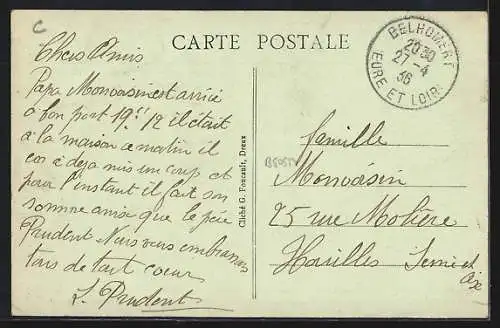 c
CARTE POSTALE
BELHOMERT
20 30
27-4
36
EURE ET LOIR
Chers Amis
Papa Monvoisin est arrivé
à bon port 19h 12 il était
à la maison ce matin il
a déjà mis un coup et
pour l'instant il fait son
somme ainsi que le père
Prudent Nous vous embrassons
tous de tout coeur
L. Prudent
Cliché G. Foucault, Dreux
famille
Monvoisin
25 rue Molière
Houilles Seine et
Oise